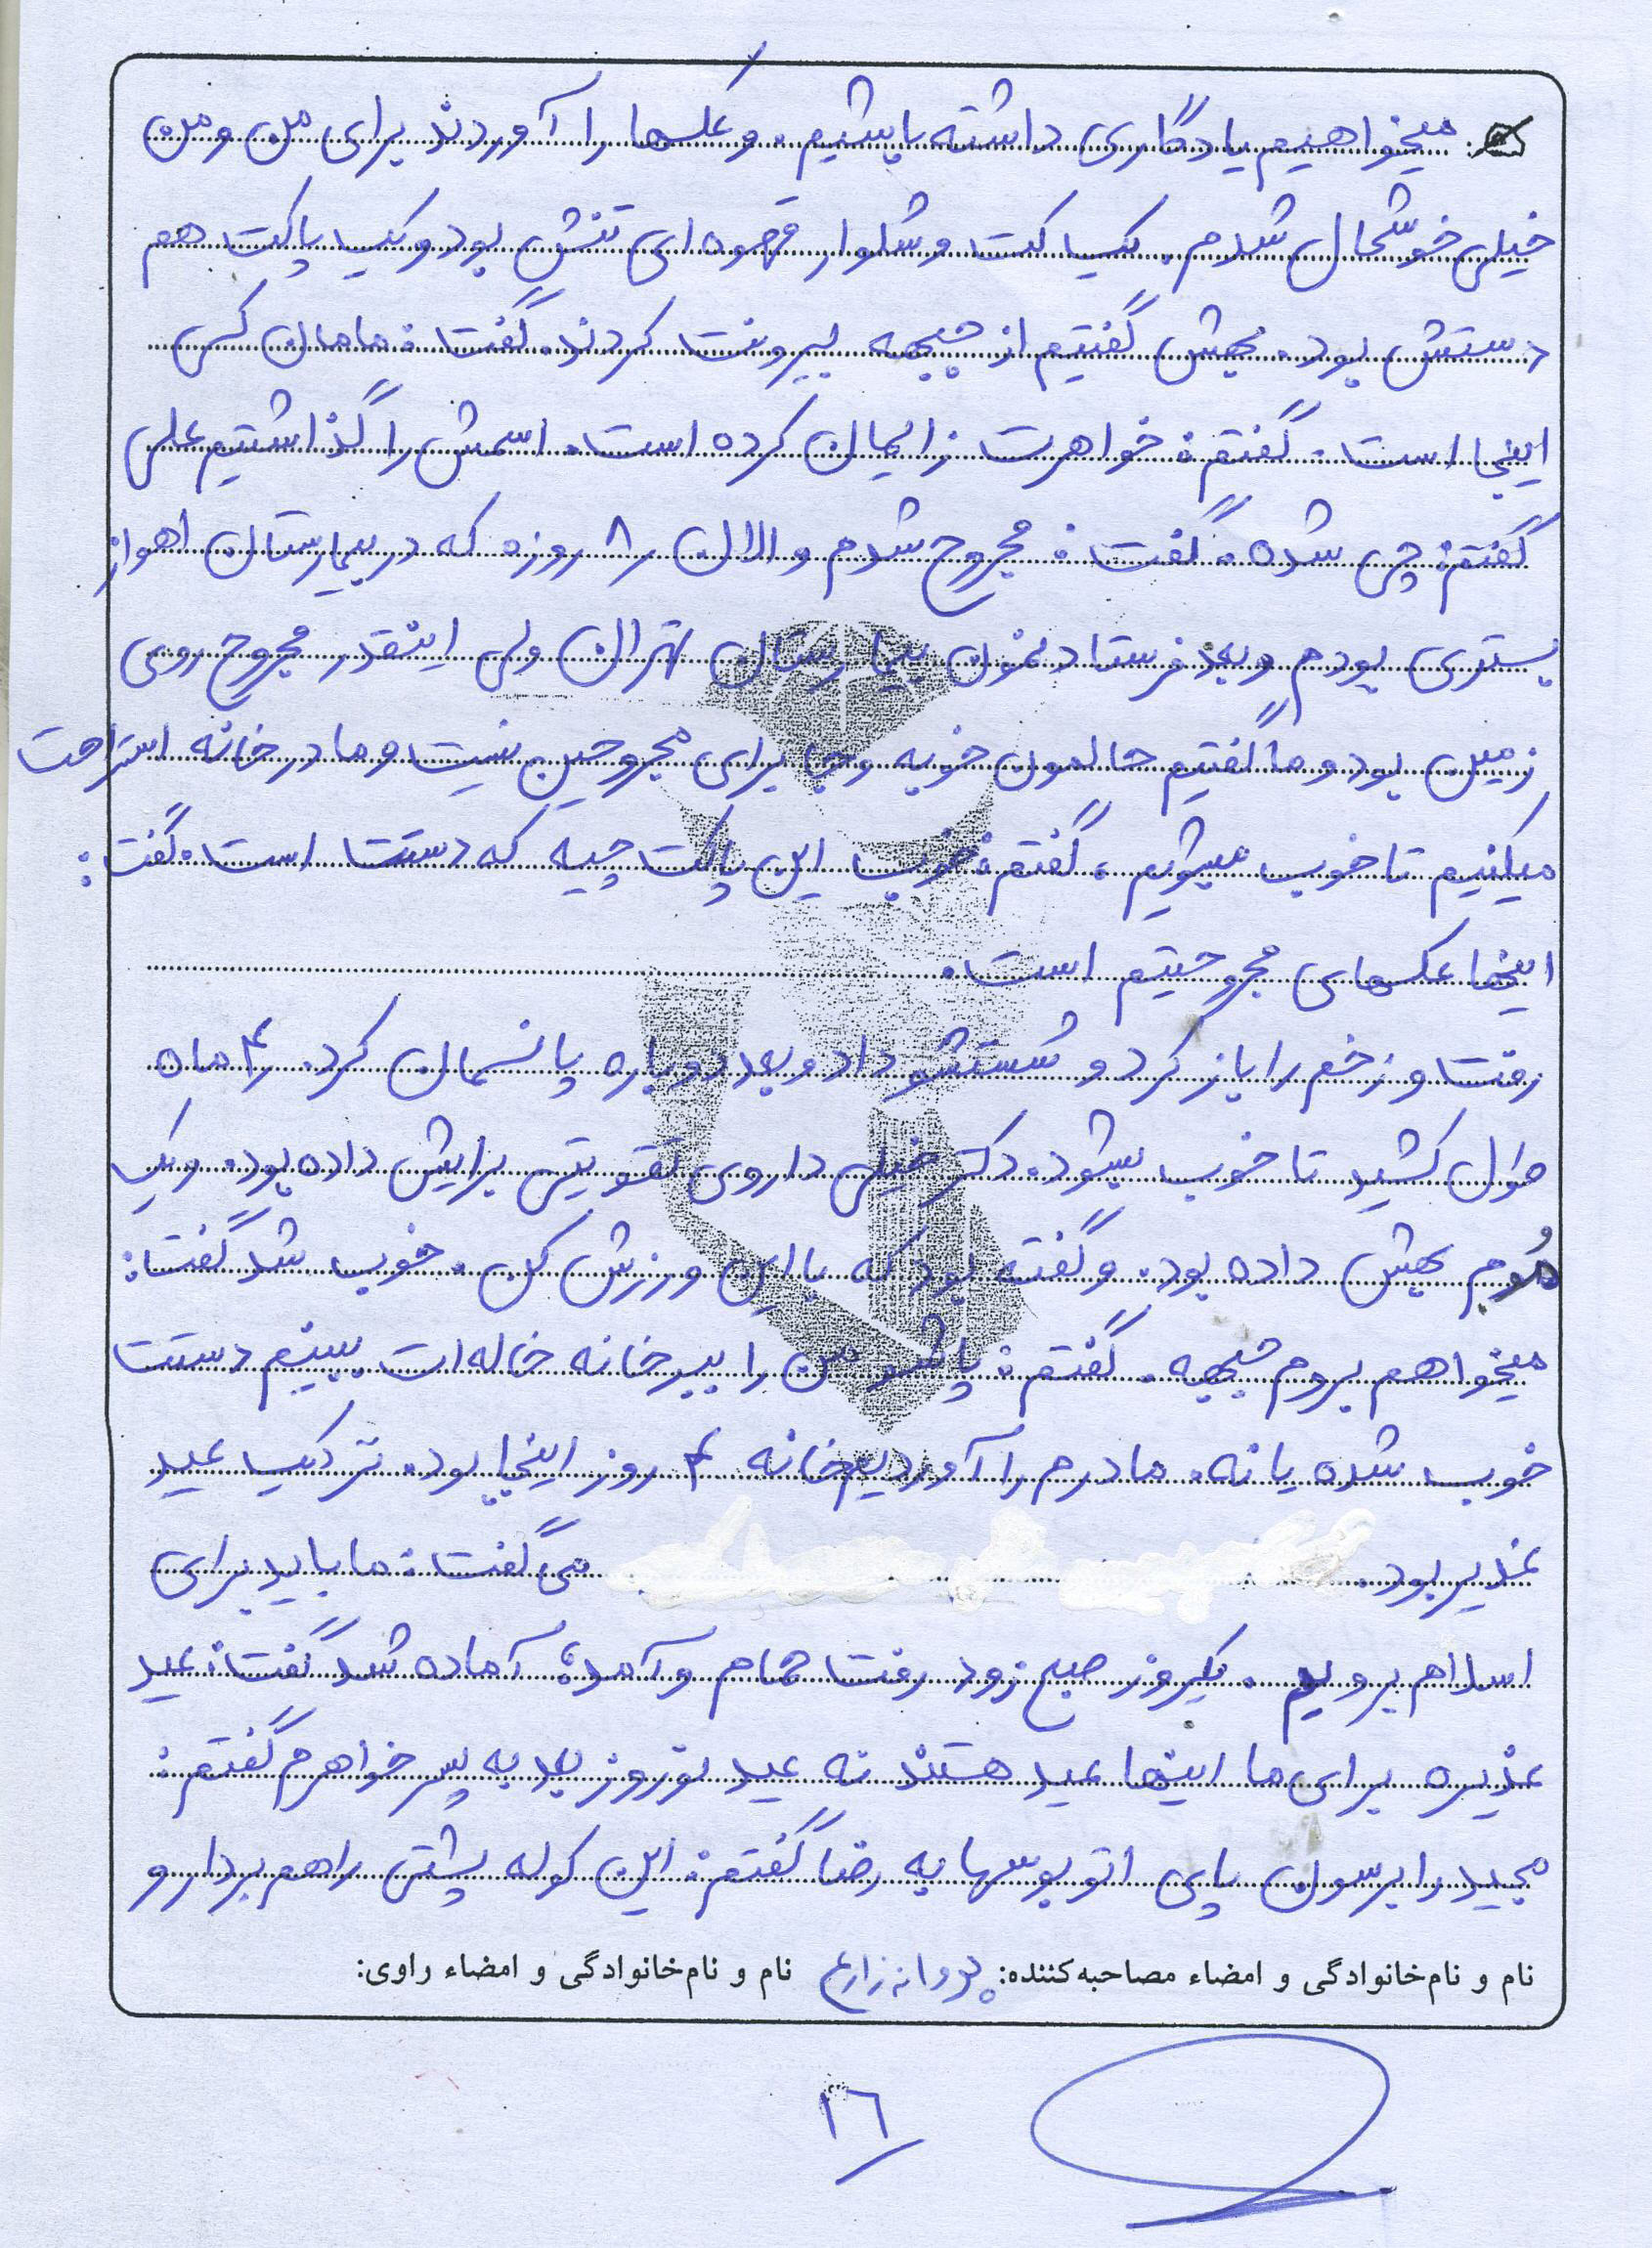 میخواهیم یادگاری داشته باشیم. و عکسها را آوردند برای من و من
خیلی خوشحال شدم. یک کت و شلوار قهوه ای تنش بود و یک پاکت هم
دستش بود. بهش گفتیم از جبهه بیرونت کردند. گفت: مامان کی
اینجا است. گفتم: خواهرت زایمان کرده است. اسمش را گذاشتیم علی
گفتم: چی شده. گفت: مجروح شدم و الان ۸ روزه که در بیمارستان اهواز
بستری بودم و بعد فرستادنمون بیمارستان تهران ولی اینقدر مجروح روی
زمین بود و ما گفتیم حالمون خوبه و جا برای مجروحین نیست و ما در خانه استراحت
میکنیم تا خوب میشویم. گفتم: خوب این پاکت چیه که دستت است. گفت:
اینها عکسهای مجروحیتم است.
رفت و زخم را باز کرد و شستشو داد و بعد دوباره پانسمان کرد. ۴ ماه
طول کشید تا خوب بشود. دکتر خیلی داروی تقویتی برایش داده بود. و یک
موم بهش داده بود. و گفته بود که با این ورزش کن. خوب شد گفت:
میخواهم بروم جبهه. گفتم: پاشو من را ببر خانه خاله ات ببینم دستت
خوب شده یا نه. مادرم را آوردیم خانه ۴ روز اینجا بود. نزدیک عید
غدیر بود. می گفت: ما باید برای
اسلام برویم. یکروز صبح زود رفت حمام و آمد، آماده شد گفت: عید
غدیره برای ما اینها عید هستند نه عید نوروز بعد به پسر خواهرم گفتم:
مجید را برسون پای اتوبوسها به رضا گفتم: این کوله پشتی را هم بردار و
نام و نام‌خانوادگی و امضاء مصاحبه‌کننده: پروانه زارع نام و نام‌خانوادگی و امضاء راوی:
۱۶